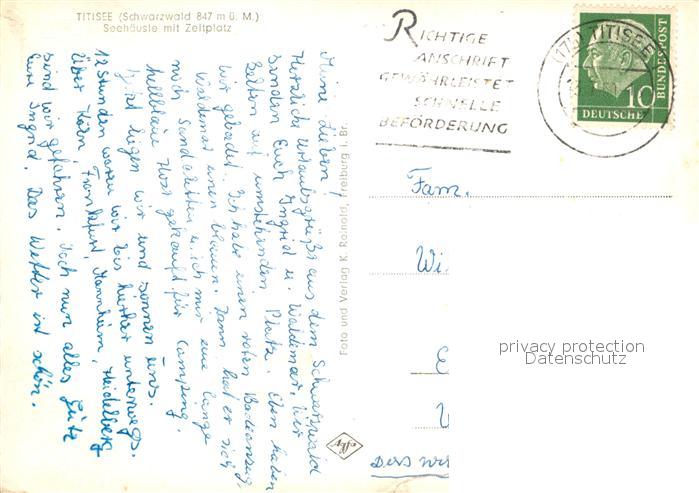 TITISEE (Schwarzwald 847 m ü. M.)
Seehäusle mit Zeltplatz
Meine Lieben!
Herzliche Urlaubsgrüße aus dem Schwarzwald
senden Euch Ingrid u. Waldemar. Wir
zelten auf umstehenden Platz. Eben haben
wir gebadet. Ich habe einen roten Badeanzug,
Waldemar einen blauen. Dann hat er sich
noch Sandaletten u. ich mir eine lange
hellblaue Hose gekauft für Camping.
Jetzt liegen wir und sonnen uns.
12 Stunden waren wir bis hierher unterwegs.
Über Köln, Frankfurt, Mannheim, Heidelberg
sind wir gefahren. Doch nun alles Gute
Eure Ingrid. Das Wetter ist schön.
Foto und Verlag K. Reinold, Freiburg i. Br.
RICHTIGE
ANSCHRIFT
GEWÄHRLEISTET
SCHNELLE
BEFÖRDERUNG
(17b) TITISEE
10
DEUTSCHE
BUNDESPOST
Fam.
Wi
privacy protection
Datenschutz